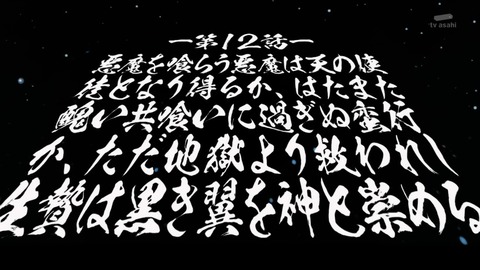 tv asahi
―第12話―
悪魔を喰らう悪魔は天の使
徒となり得るか、はたまた
醜い共喰いに過ぎぬ蛮行
か、ただ地獄より救われし
生贄は黒き翼を神と崇める